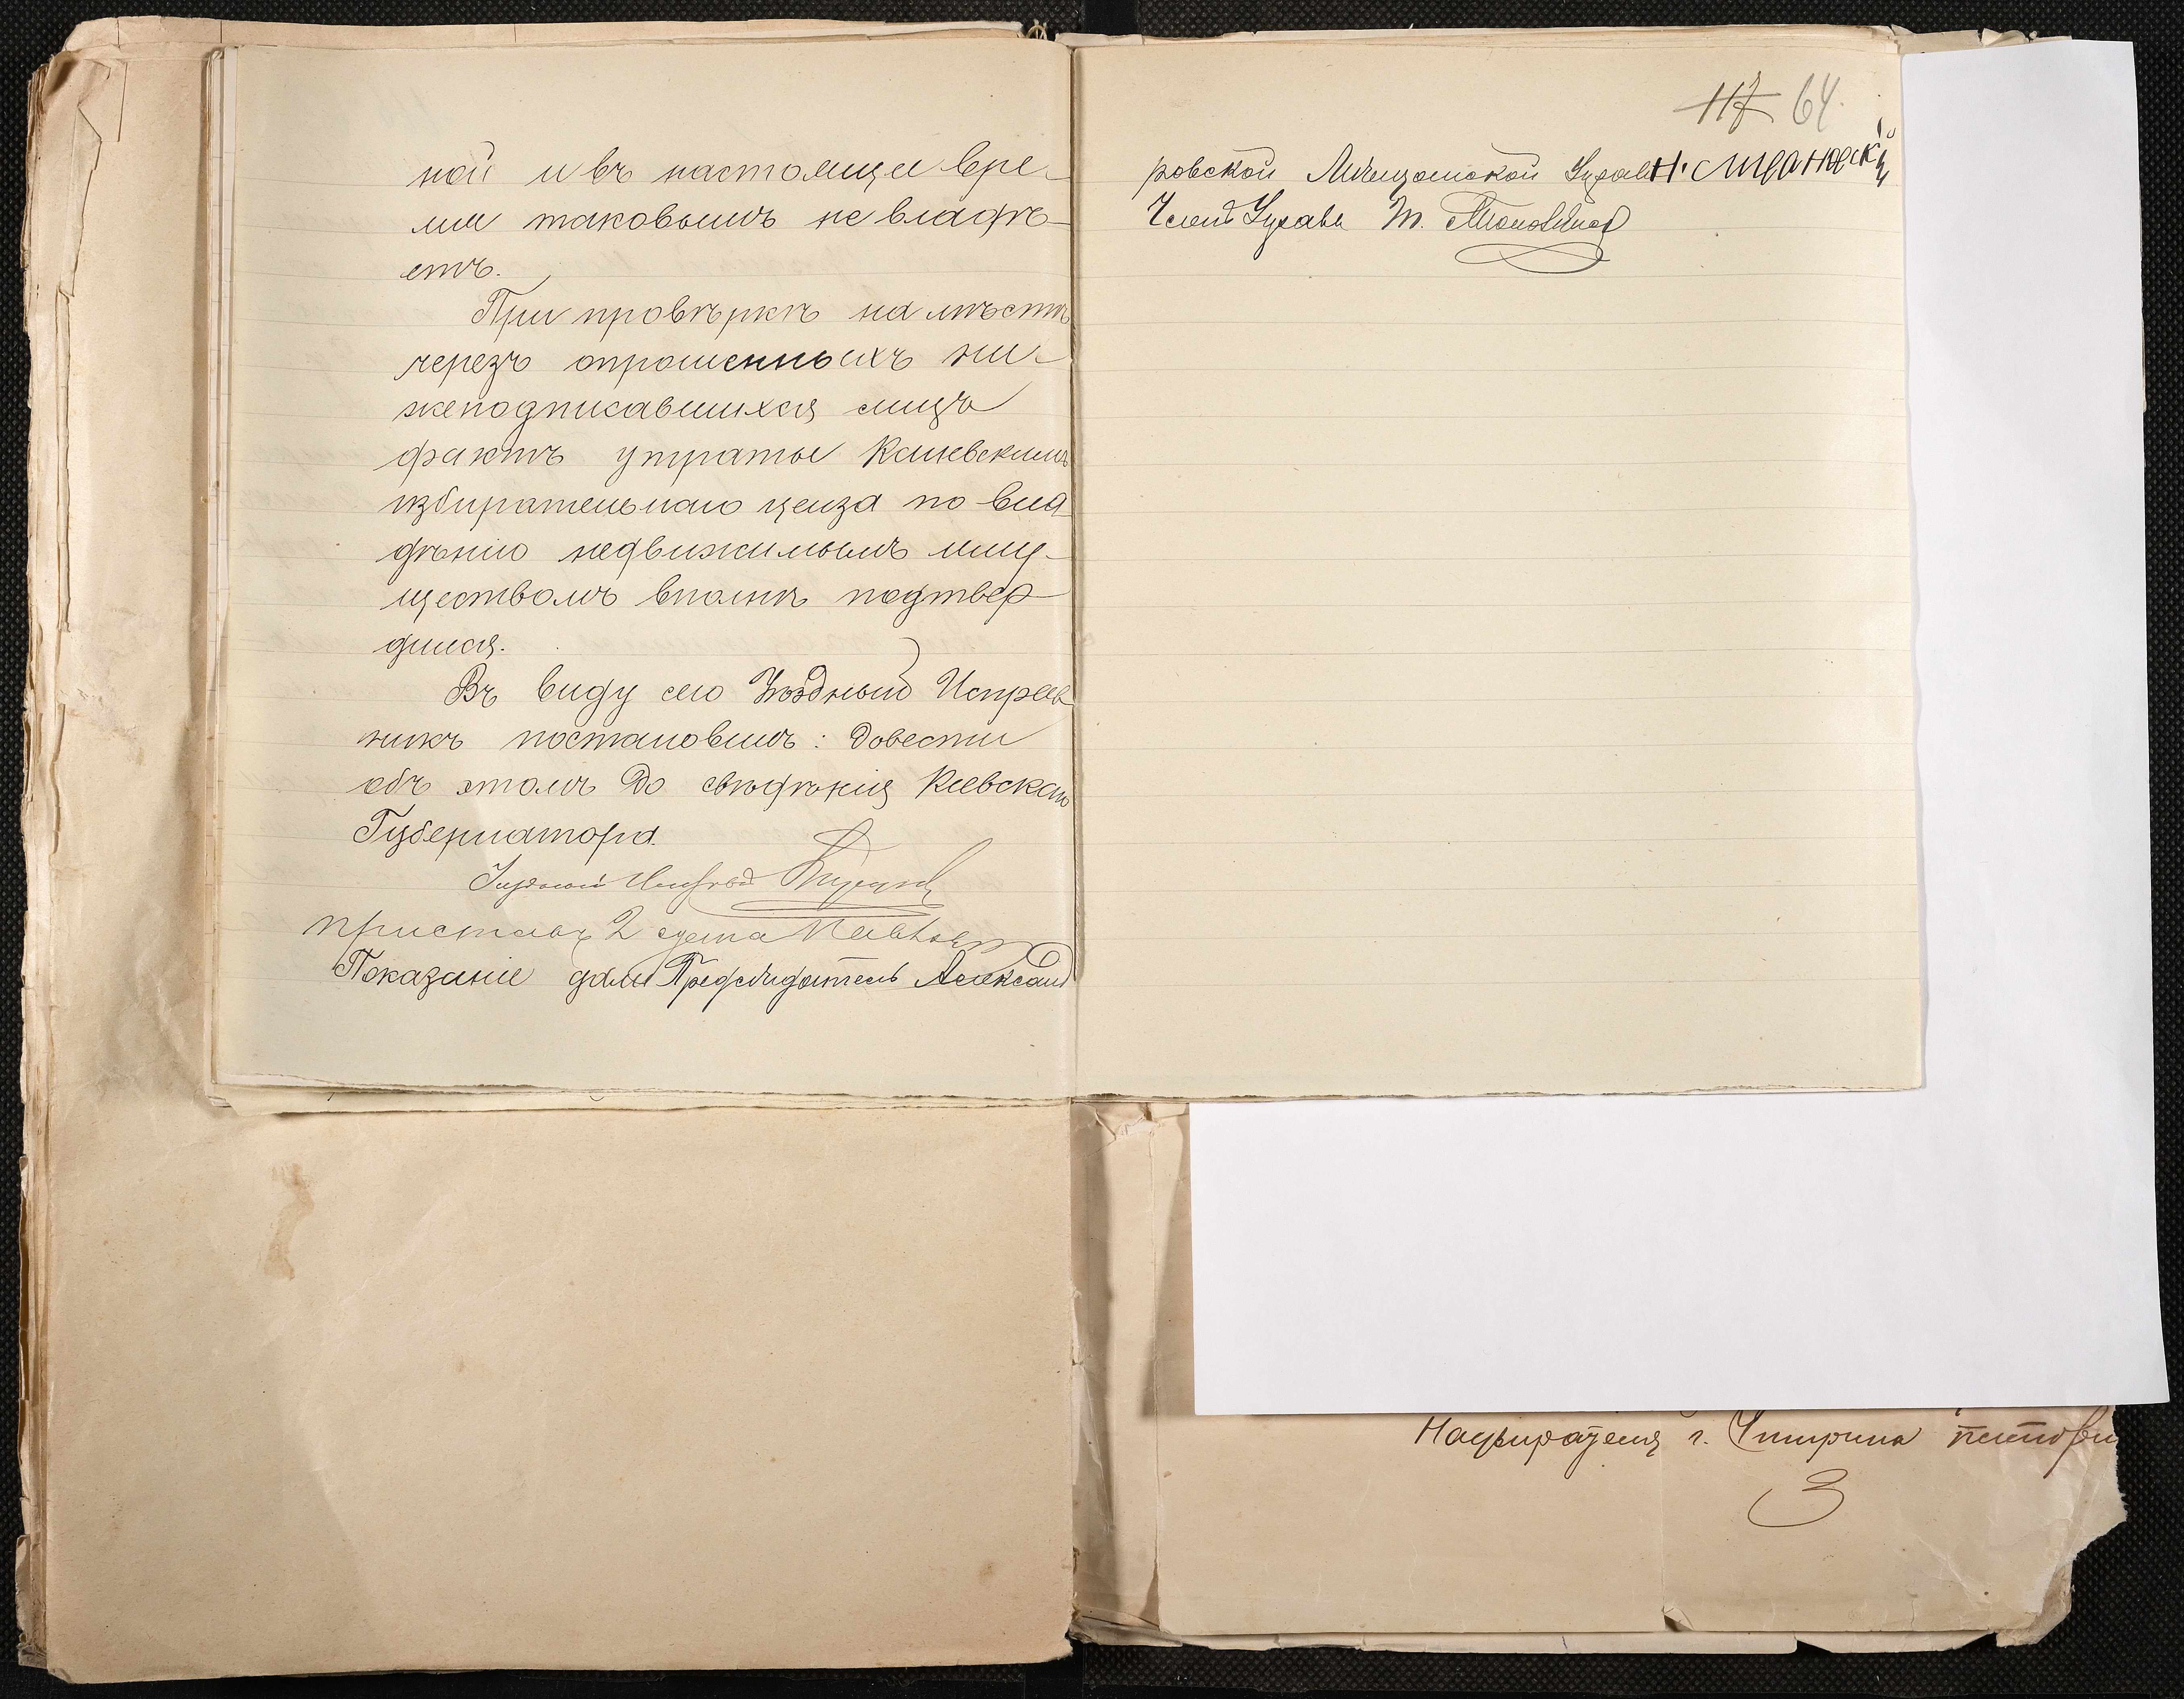 ной и въ настоящее вре-
мя таковымъ не владѣ-
етъ.
При провѣркѣ на мѣстѣ
черезъ опрошенныхъ ни-
жеподписавшихся лицъ
фактъ утраты Каневскимъ
избирательнаго ценза по вла
дѣнію недвижимымъ иму-
ществомъ вполнѣ подтвер
дился.
Въ виду сего Уѣздный Исправ
никъ постановилъ: довести
объ этомъ до свѣдѣнія Кіевскаго
Губернатора.
Уѣздный Исправ
приставъ 2 стана
Показаніе дали Предсѣдатель Александ
117 64.
ровской Мѣщанской Управы
Членъ Управы Т.
Надзирателя г. Чигирина
3